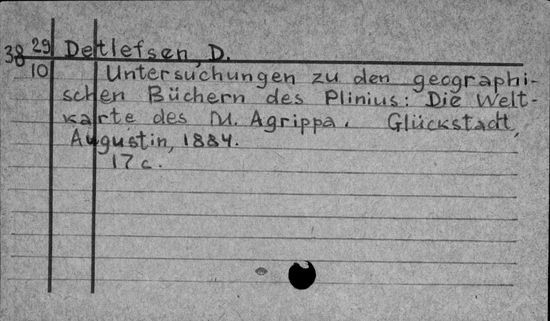 38 29 Detlefsen, D.
10 Untersuchungen zu den geographi-
schen Büchern des Plinius: Die Welt-
karte des M. Agrippa. Glückstadt,
Augustin, 1884.
17 c.